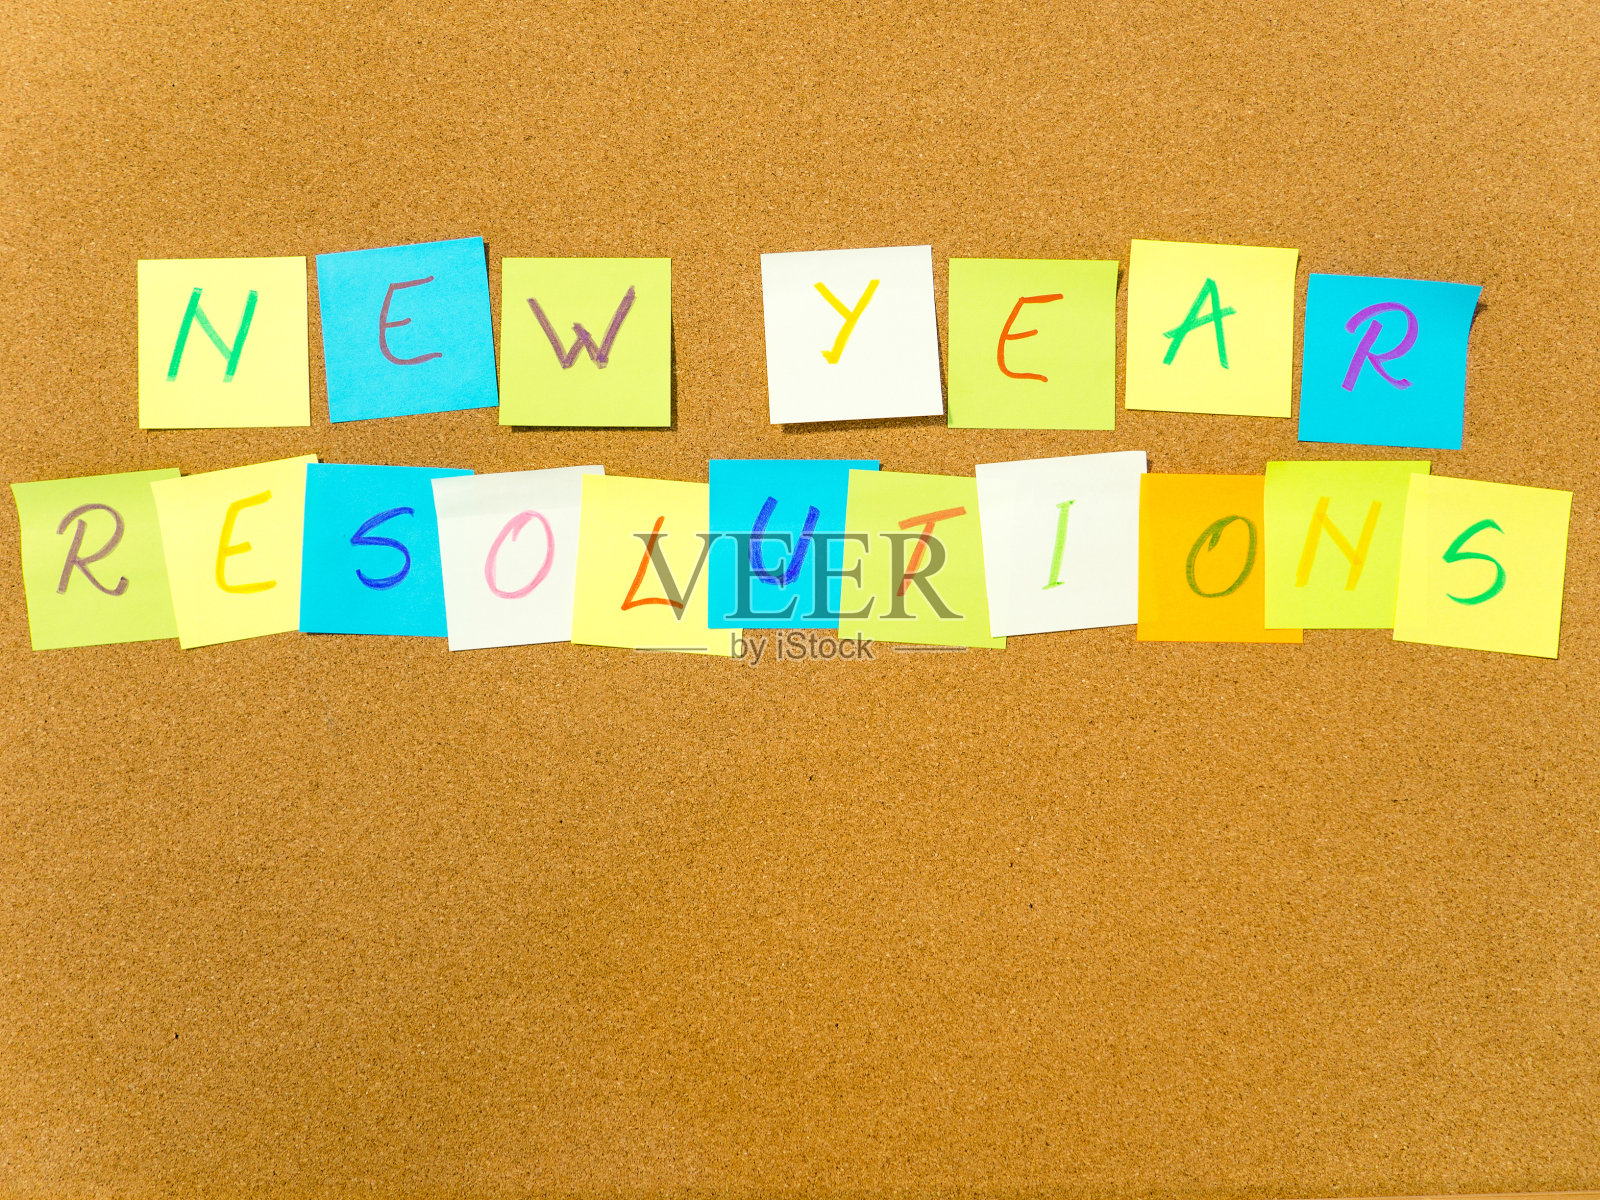 NEW YEAR
RESOLUTIONS
VEER
by iStock